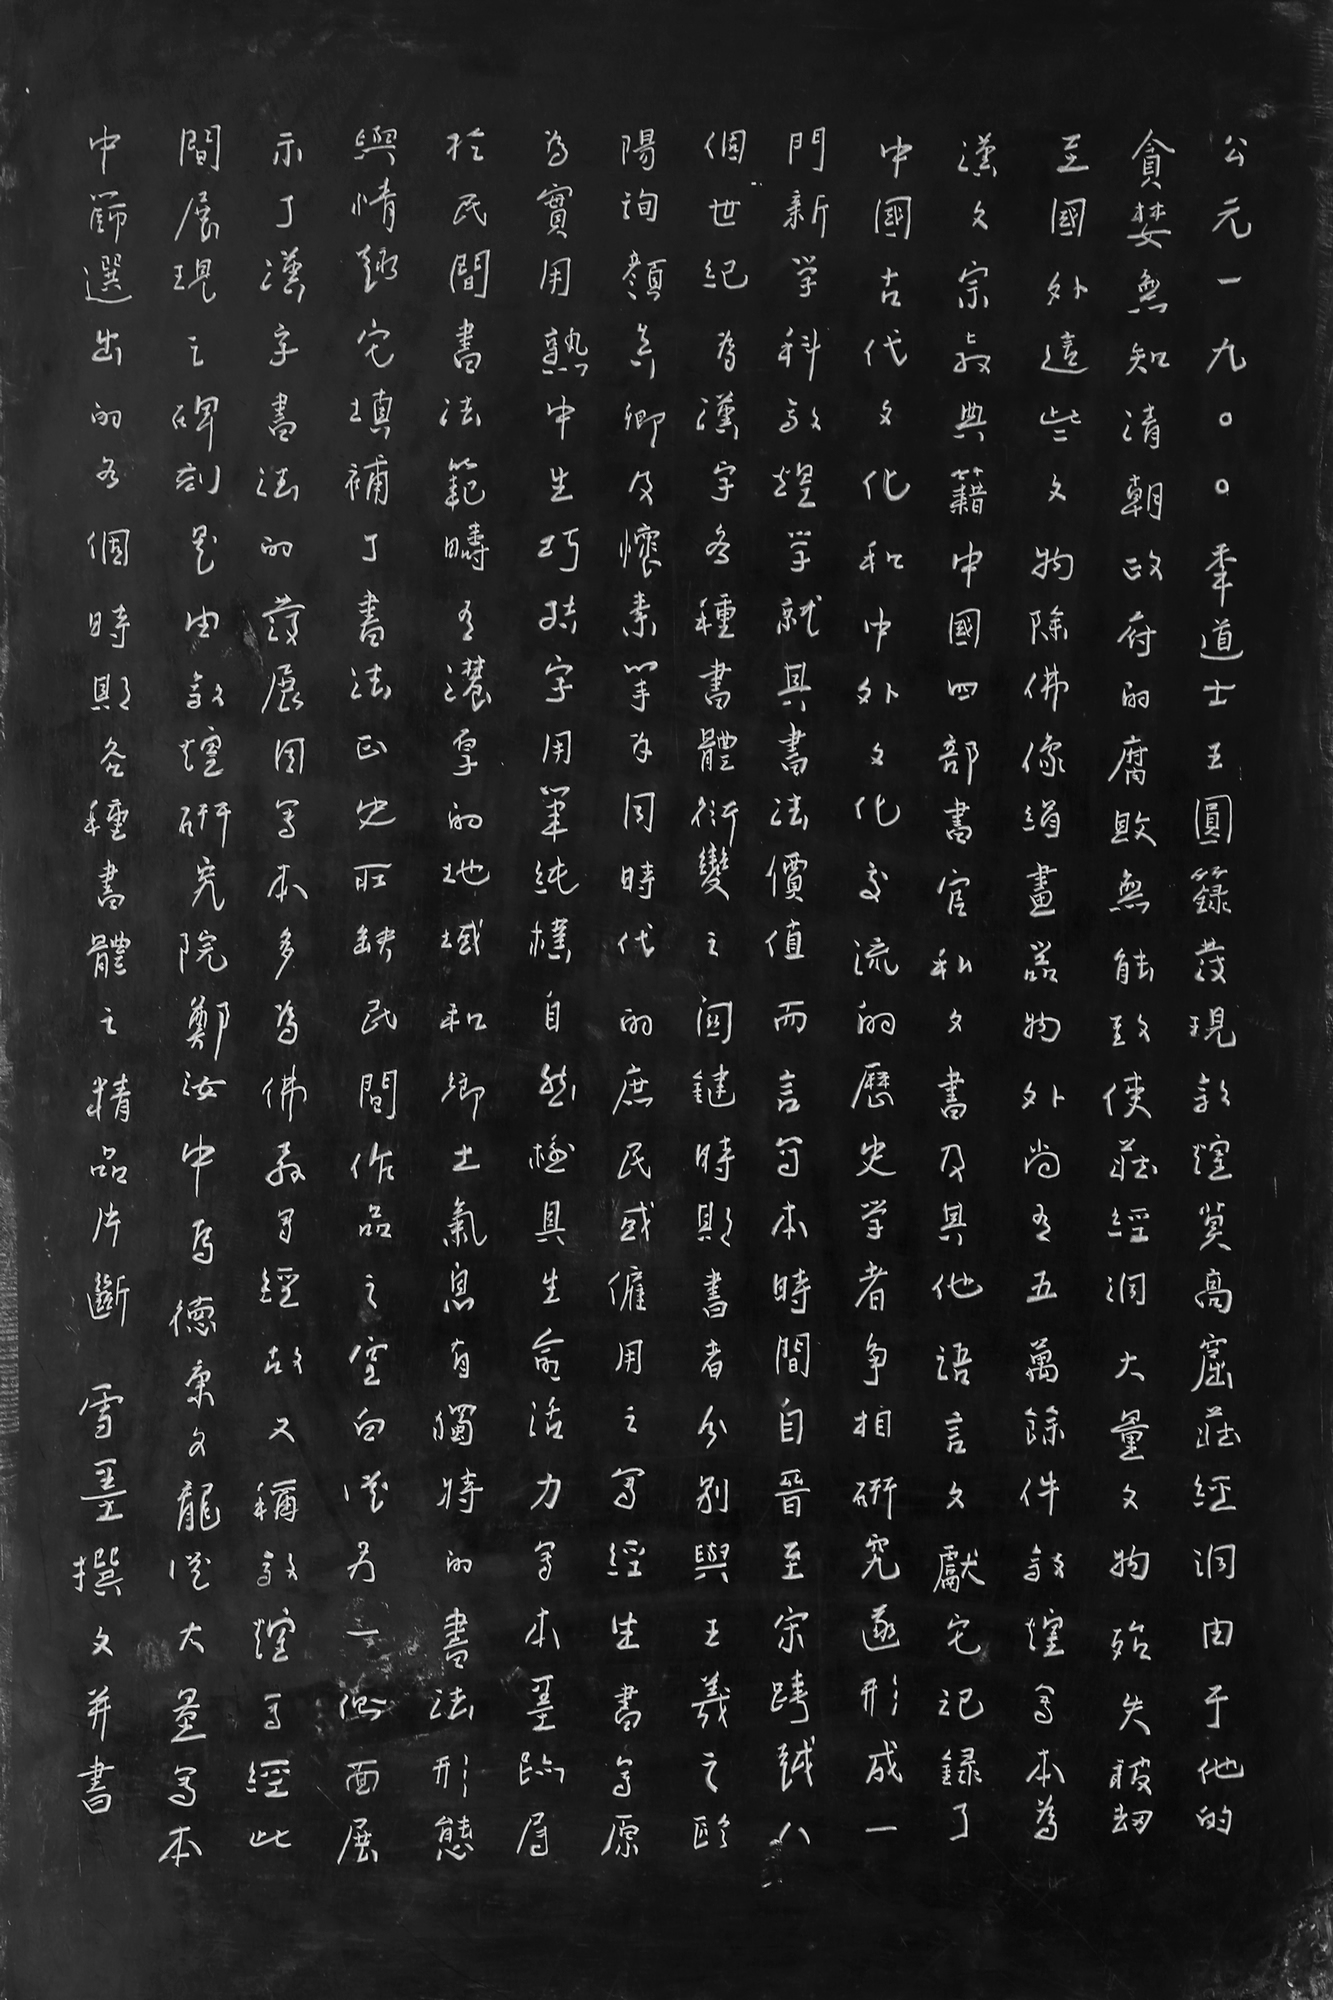 公元一九〇〇年道士王圓籙發現敦煌莫高窟莊經洞由于他的
貪婪無知清朝政府的腐敗無能致使莊經洞大量文物殆失被劫
至國外這些文物除佛像絹畫器物外尚有五萬餘件敦煌寫本為
漢文宗教典籍中國四部書官私文書及其他語言文獻它記録了
中國古代文化和中外文化交流的歷史学者争相研究遂形成一
門新学科敦煌学就其書法價值而言寫本時間自晉至宗跨越八
個世紀為漢字各種書體衍變之関鍵時期書者分别與王羲之歐
陽詢顏真卿及懷素等为同時代的庶民或僱用之寫經生書寫原
為實用熟中生巧故字用筆純樸自然極具生命活力寫本墨跡屬
於民間書法範疇有濃厚的地域和鄉土氣息有獨特的書法形態
與情趣它填補了書法正史所缺民間作品之空白從另一側面展
示了漢字書法的發展因寫本多為佛教寫經故又稱敦煌寫經此
間展現之碑刻是由敦煌研究院鄭汝中馬德東文龍從大量寫本
中篩選出的各個時期各種書體之精品片斷 雪墨撰文并書